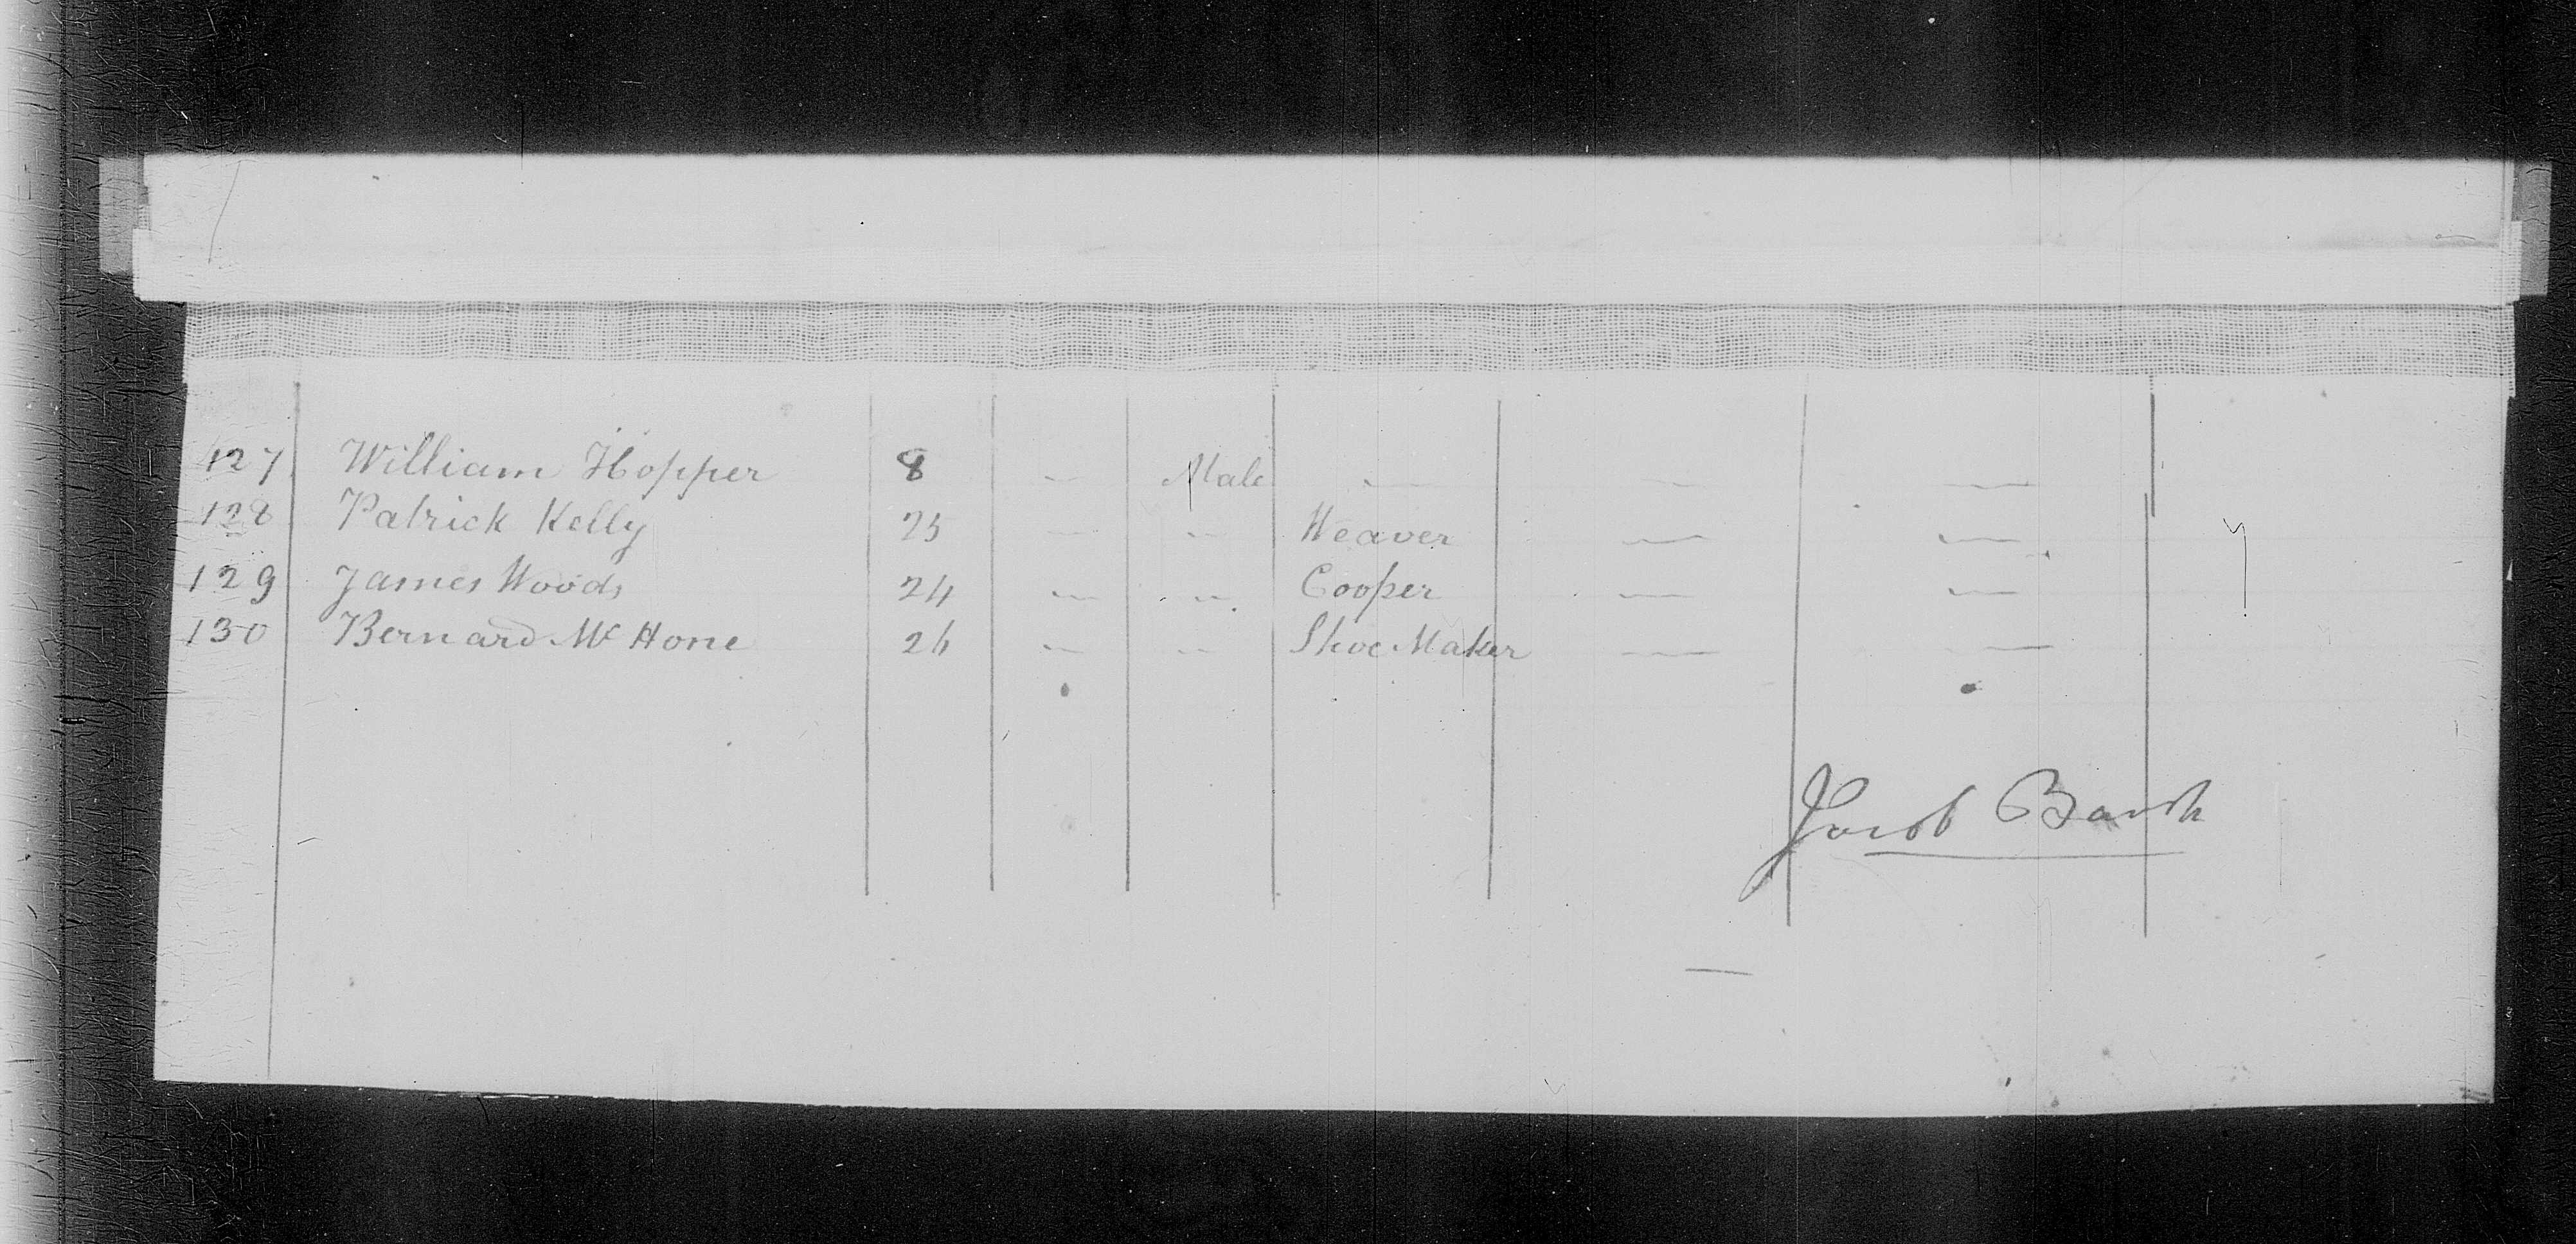 127 William Hopper 8 " Male — — —
128 Patrick Kelly 25 " " Weaver — —
129 James Woods 24 " " Cooper — —
130 Bernard Mc Hone 26 " " Shoe Maker — —
Jacob